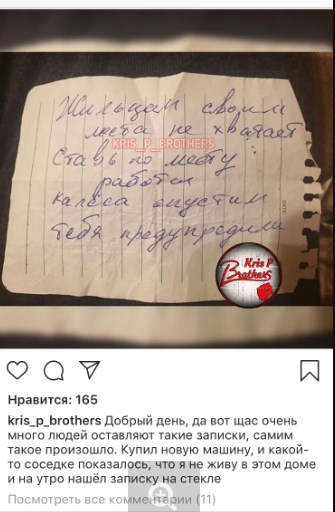 Жильцам своим
места не хватает
KRIS_P_BROTHERS
Ставь по месту
работы
калёса опустим
тебя предупредили
Kris P
Brothers
Нравится: 165
kris_p_brothers Добрый день, да вот щас очень
много людей оставляют такие записки, самим
такое произошло. Купил новую машину, и какой-
то соседке показалось, что я не живу в этом доме
и на утро нашёл записку на стекле
Посмотреть все комментарии (11)